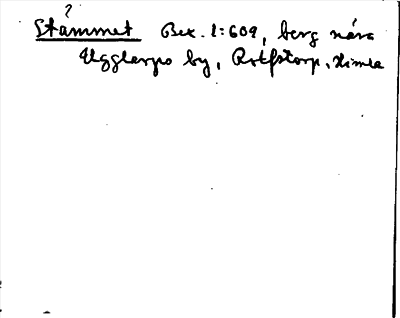 ?
Stämmet Bex. 1:609, berg nära
Ugglarps by, Rolfstorp, Himla